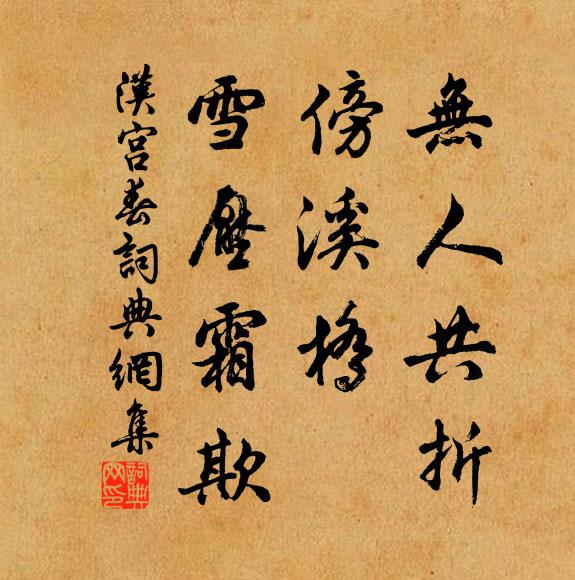 無人共折
傍溪橋
雪壓霜欺
漢宮春詞典網集
詞典網印